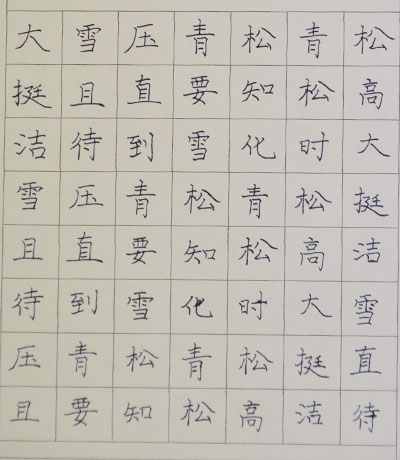 大雪压青松青松
挺且直要知松高
洁待到雪化时大
雪压青松青松挺
且直要知松高洁
待到雪化时大雪
压青松青松挺直
且要知松高洁待